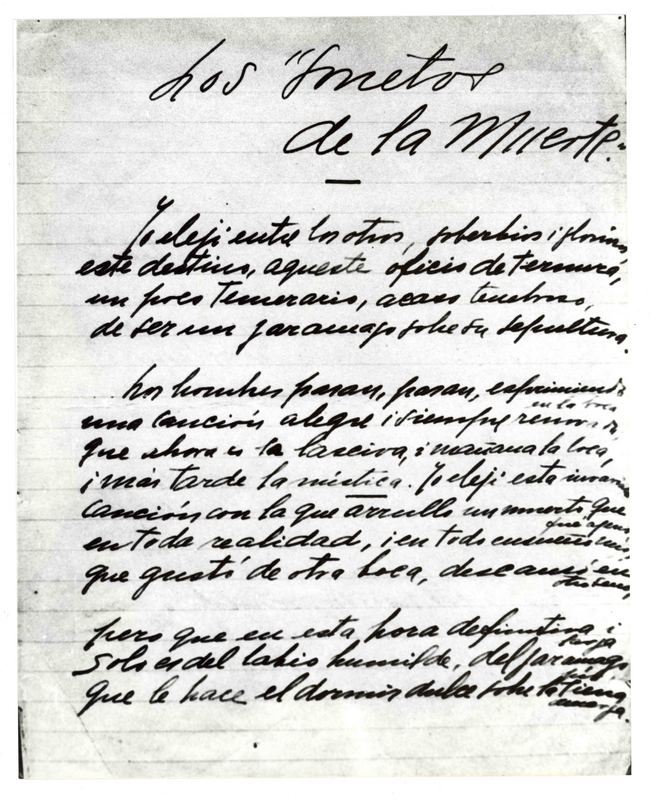 Los "Sonetos
de la Muerte."
Yo eleji entre los otros, soberbios i gloriosos,
este destino, aqueste oficio de ternura,
un poco temerario, acaso tenebroso,
de ser un jaramago sobre su sepultura.
Los hombres pasan, pasan, esprimiendo
en la boca
una canción alegre i siempre renovada,
que ahora es la lasciva, i mañana la loca,
i más tarde la mística. Yo eleji esta invariable
canción con la que arrullo un muerto que
fué ajeno
en toda realidad, i en todo ensueño mío,
que gustó de otra boca, descansó en
otro seno,
pero que en esta hora definitiva i
larga
solo es del labio humilde, del jaramago
que le hace el dormir dulce sobre la tierra
amarga.